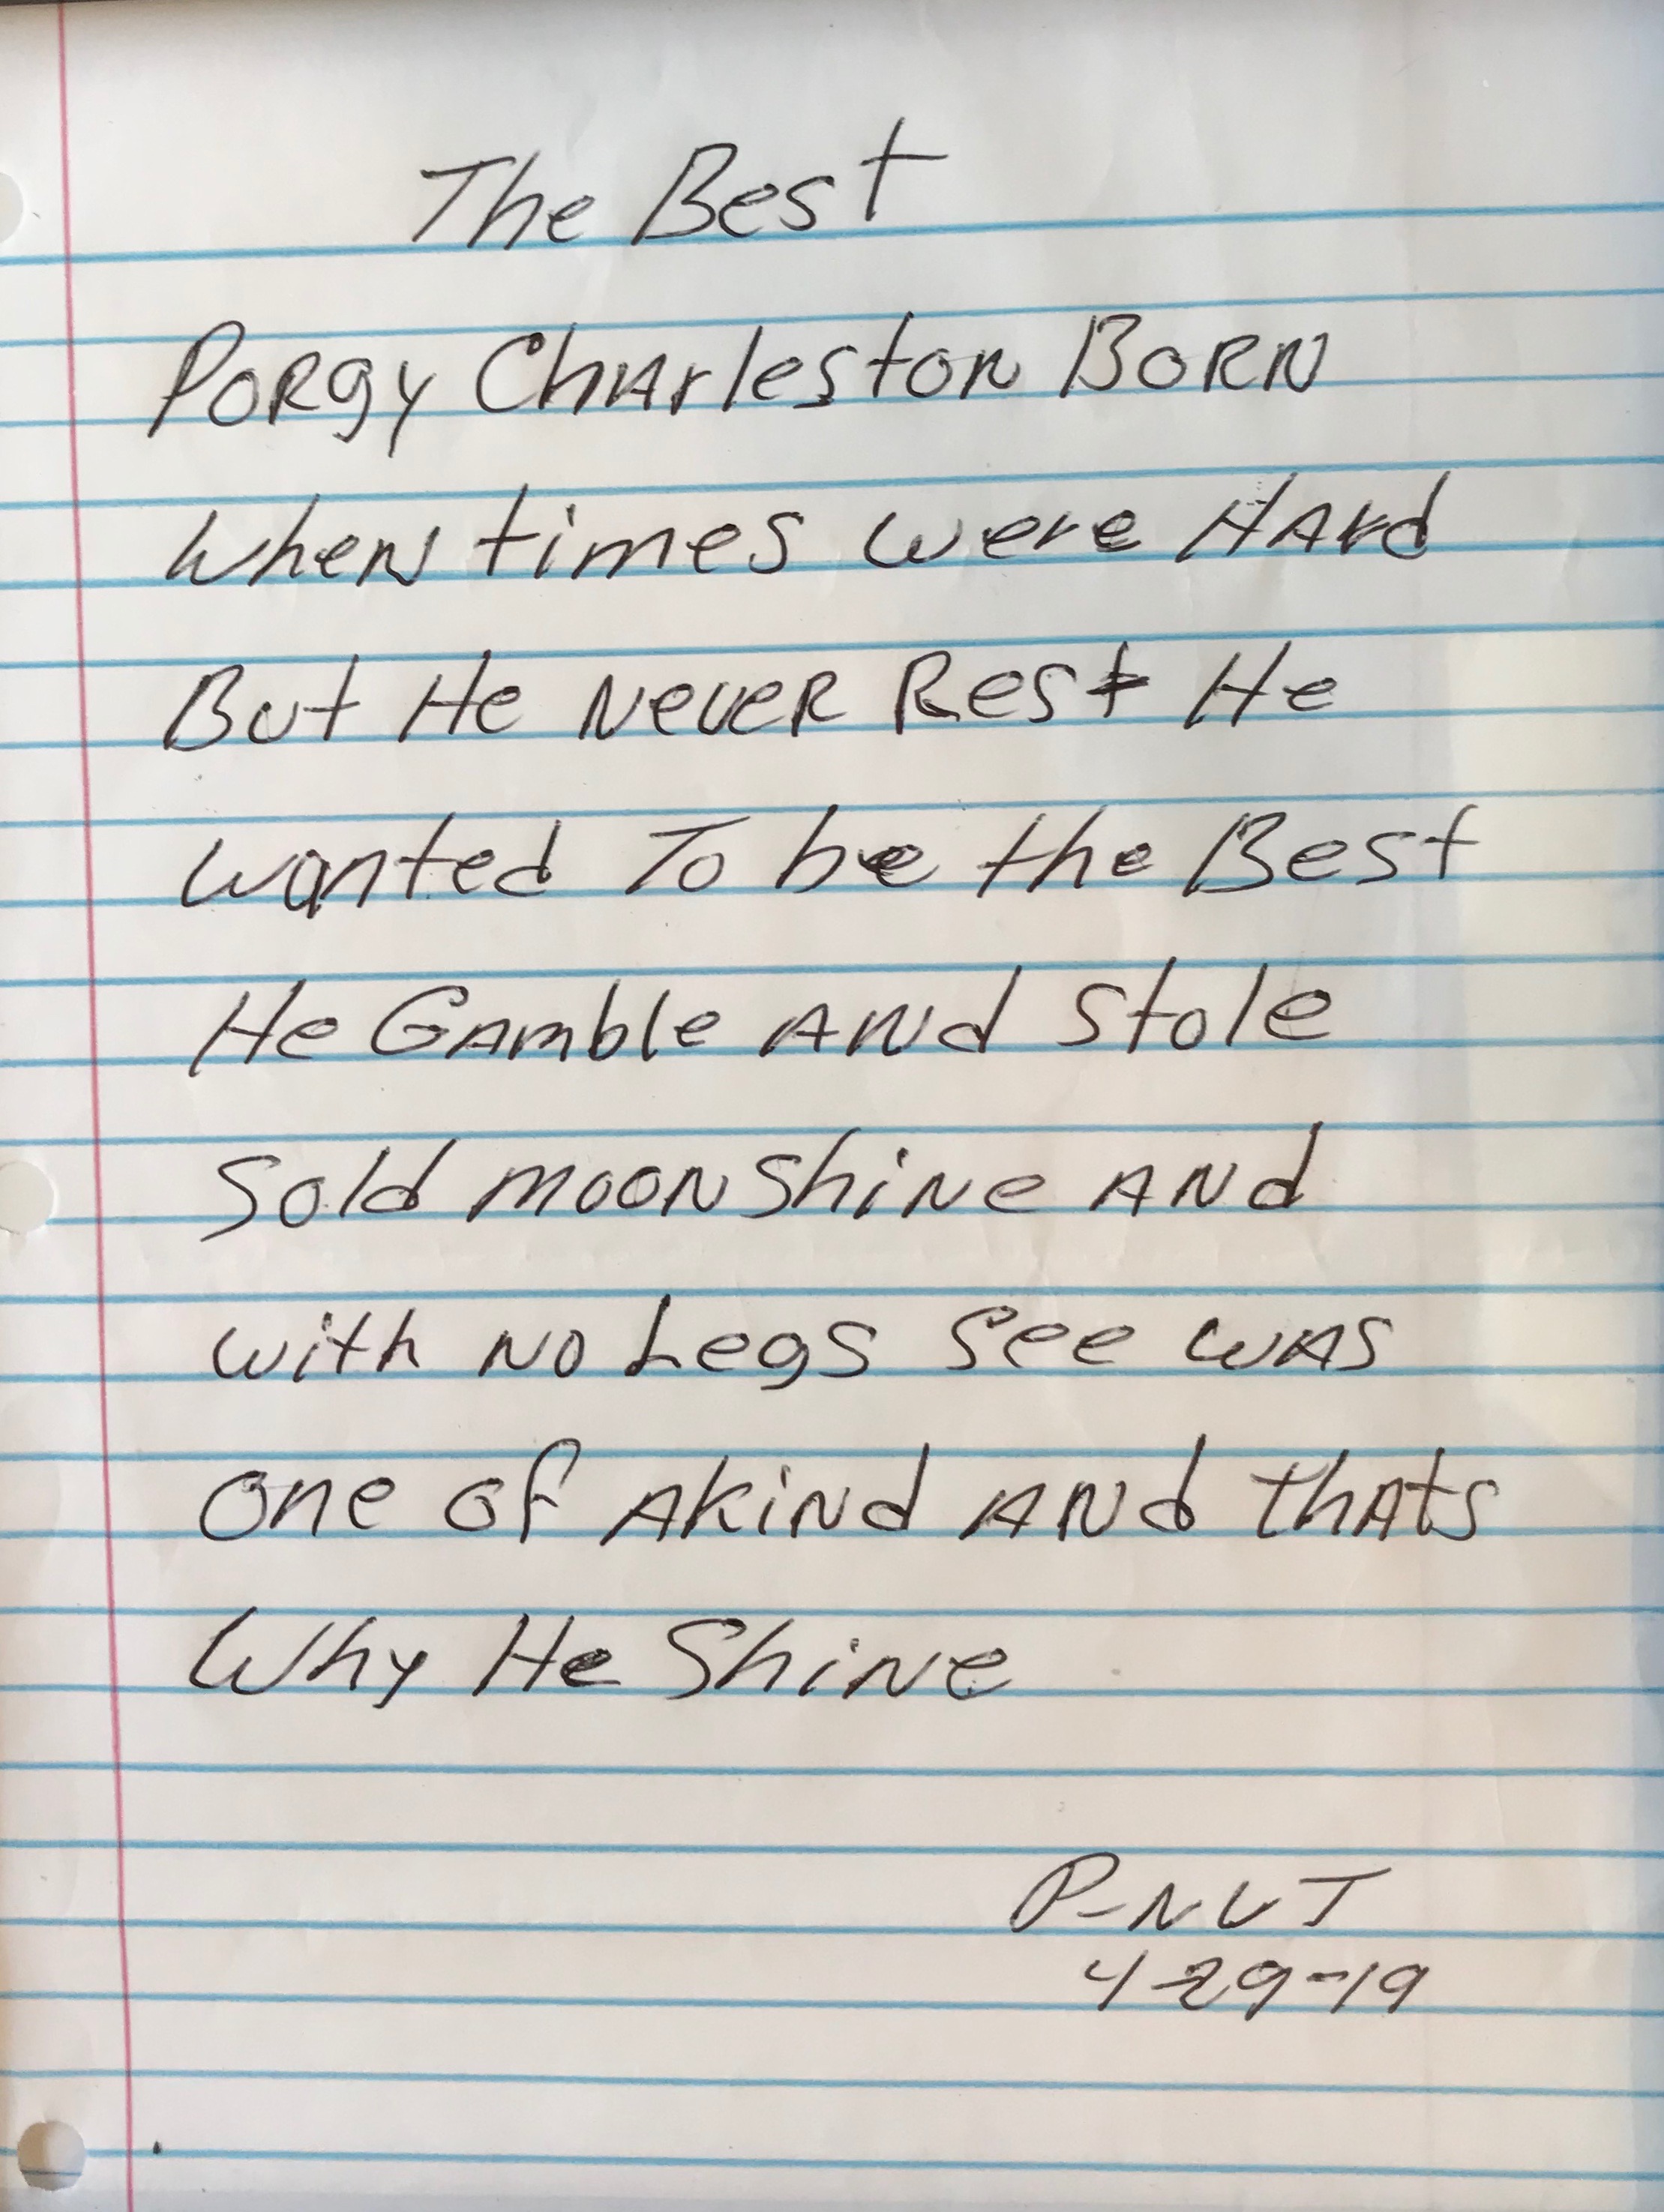 The Best
Porgy Charleston Born
When times were Hard
But He Never Rest He
wanted To be the Best
He Gamble And Stole
Sold moonshine And
with No Legs See was
one of Akind And thats
Why He Shine
P-NUT
4-29-19